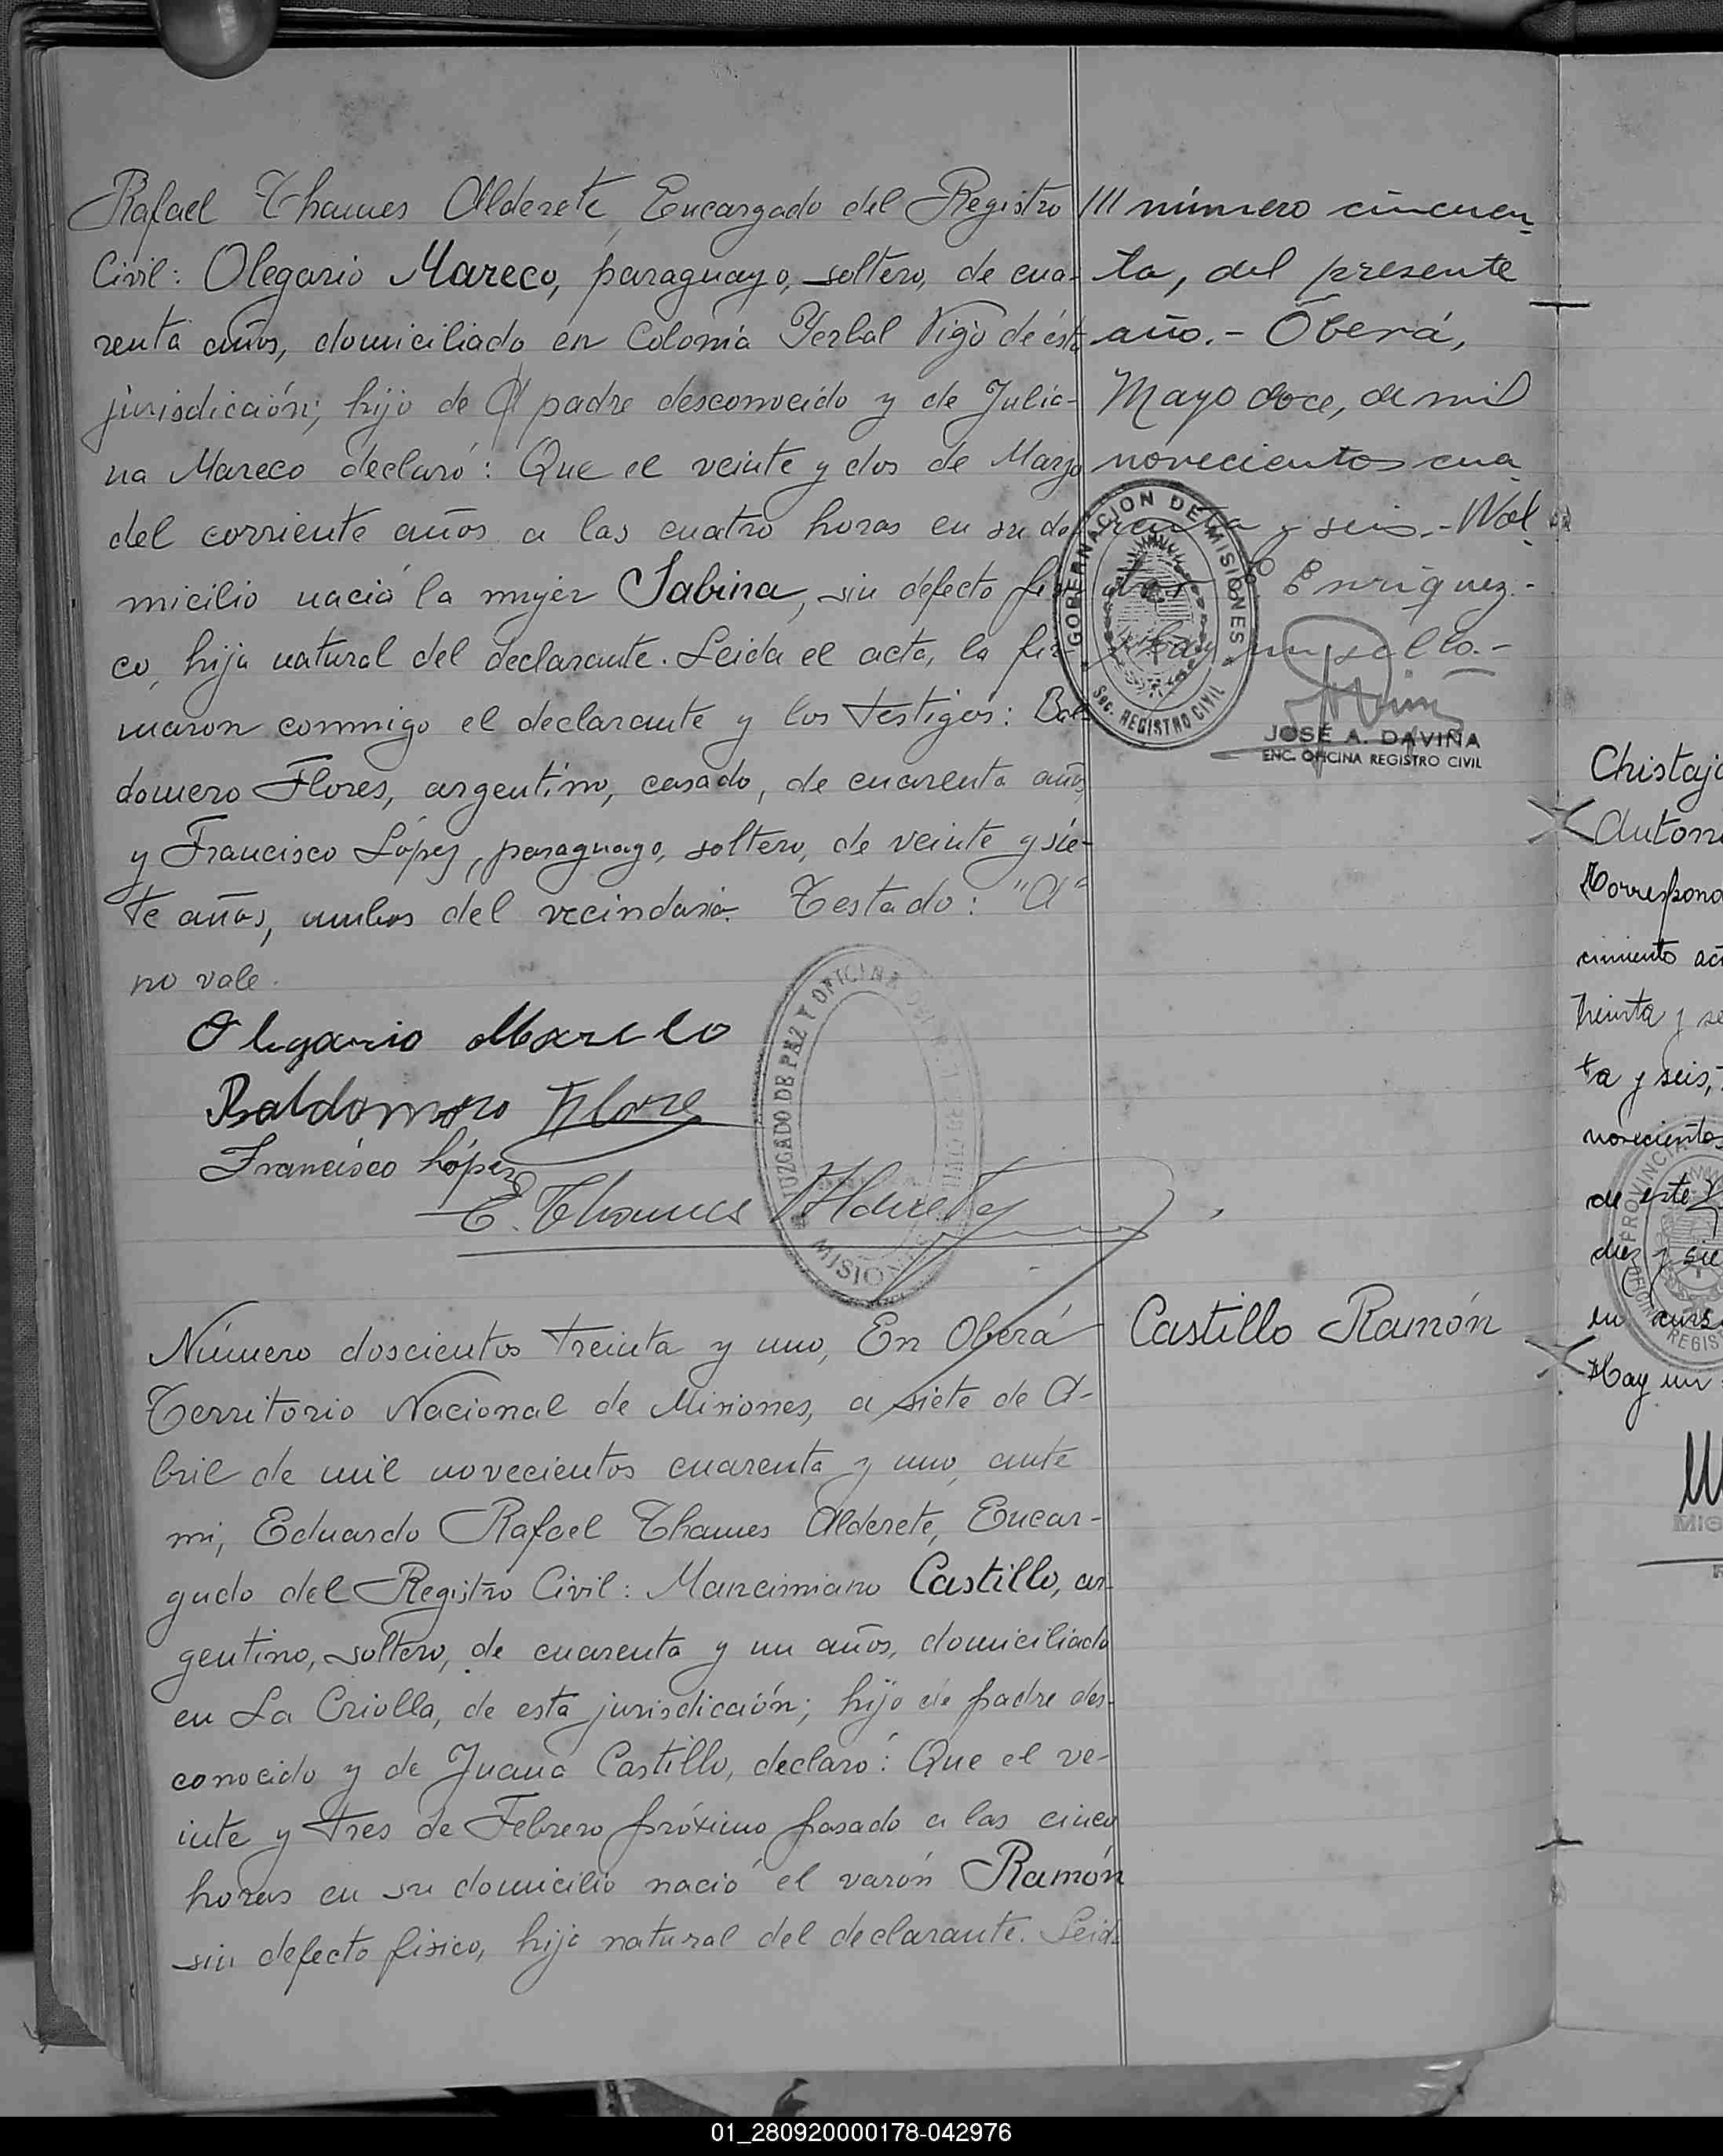 Rafael Thames Alderete, Encargado del Registro
Civil: Olegario Mareco, paraguayo, soltero, de cua-
renta años, domiciliado en Colonia Yerbal Vigo de ésta
jurisdicción; hijo de A padre desconocido y de Julia-
na Mareco declaró: Que el veinte y dos de Marzo
del corriente años a las cuatro horas en su do-
micilio nació la mujer Sabina, sin defecto físi-
co, hija natural del declarante. Leida el acta, la fir-
maron conmigo el declarante y los testigos: Bal-
domero Flores, argentino, casado, de cuarenta años,
y Francisco López, paraguayo, soltero, de veinte y sie-
te años, ambos del vecindario. Testado: "A"
no vale.
Olegario Mareco
Baldomero Flores
Francisco López
E. Thames Alderete
JUZGADO DE PAZ Y OFICINA DEL
MISIONES
III número cincuen-
ta, del presente
año.- Oberá,
Mayo doce, de mil
novecientos cua-
renta y seis.- Wal-
ter E. Enriquez.-
Hay un sello.-
GOBERNACION DE MISIONES
Sec. REGISTRO CIVIL
JOSÉ A. DAVIÑA
ENC. OFICINA REGISTRO CIVIL
Número doscientos treinta y uno, En Oberá
Territorio Nacional de Misiones, a siete de A-
bril de mil novecientos cuarenta y uno, ante
mi, Eduardo Rafael Thames Alderete, Encar-
gado del Registro Civil: Marcimiano Castillo, ar-
gentino, soltero, de cuarenta y un años, domiciliado
en La Criolla, de esta jurisdicción; hijo de padre des-
conocido y de Juana Castillo, declaró: Que el ve-
inte y tres de Febrero próximo pasado a las cinco
horas en su domicilio nació el varón Ramón
sin defecto físico, hijo natural del declarante. Leida
Castillo Ramón
Christaj
Autom
Correspond
cimiento ac
treinta y se
ta y seis,
novecientos
de este
diez y sie
en curs
Hay un
PROVINCIA
OFICIN
REGIS
MIG
01_280920000178-042976